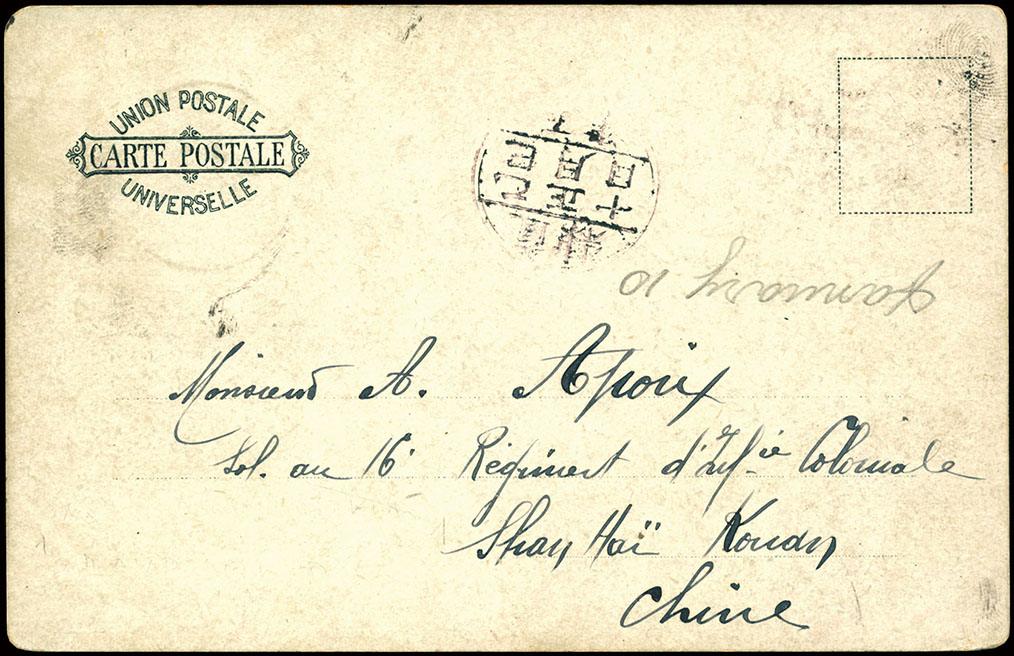 UNION POSTALE
CARTE POSTALE
UNIVERSELLE
January 10
Monsieur A. Apoix
Sol. au 16e Régiment d'Infie Coloniale
Shan Haï Kouan
Chine